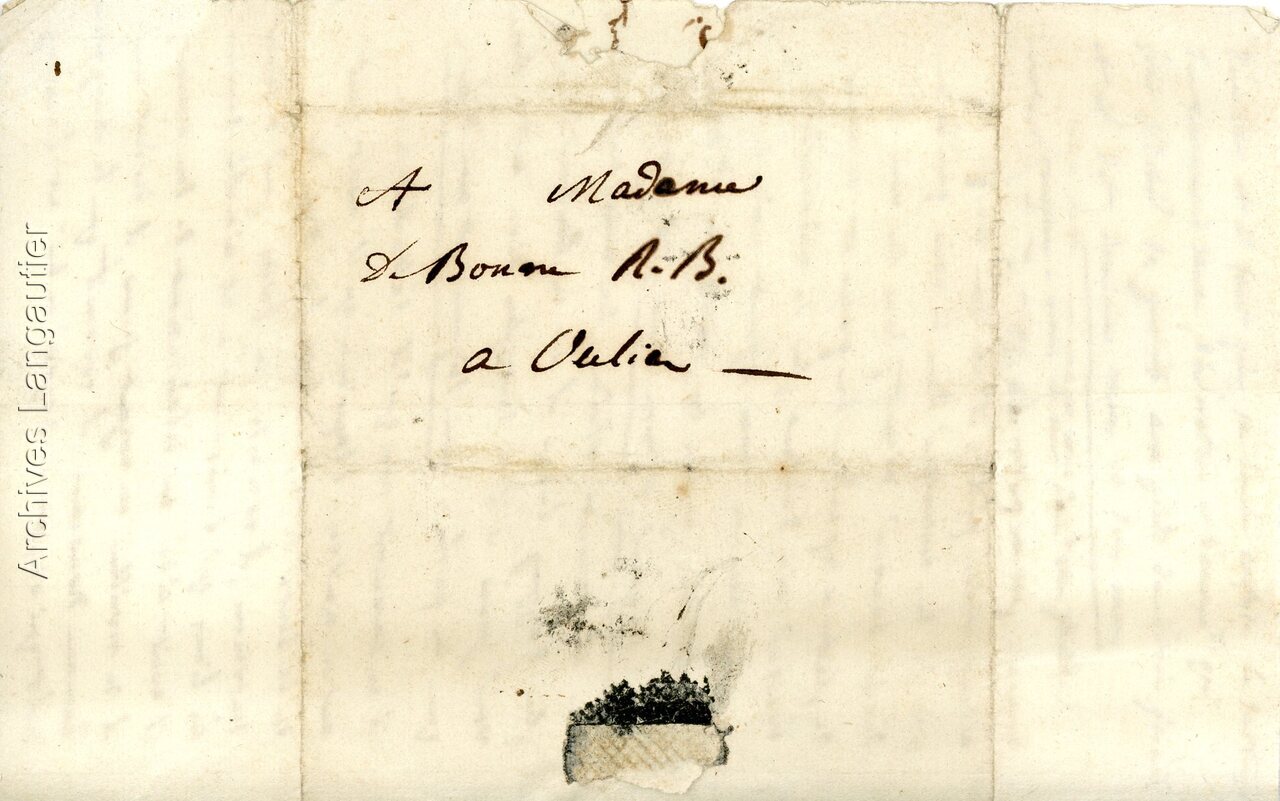 A Madame
De Bonne R. B.
a Oulier —
Archives Langautier